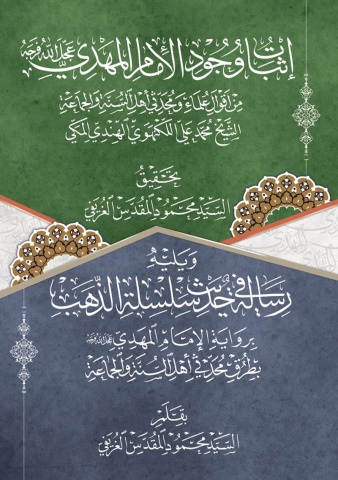 إثبات وجود الإمام المهدي عجل الله فرجه
من أقوال علماء ومحدثي أهل السنة والجماعة
الشيخ محمد علي اللكهنوي الهندي المكي
تحقيق
السيد محمود المقدس الغريفي
ويليه
رسالة في حديث سلسلة الذهب
برواية الإمام المهدي عجل الله فرجه
بطرق محدثي أهل السنة والجماعة
بقلم
السيد محمود المقدس الغريفي